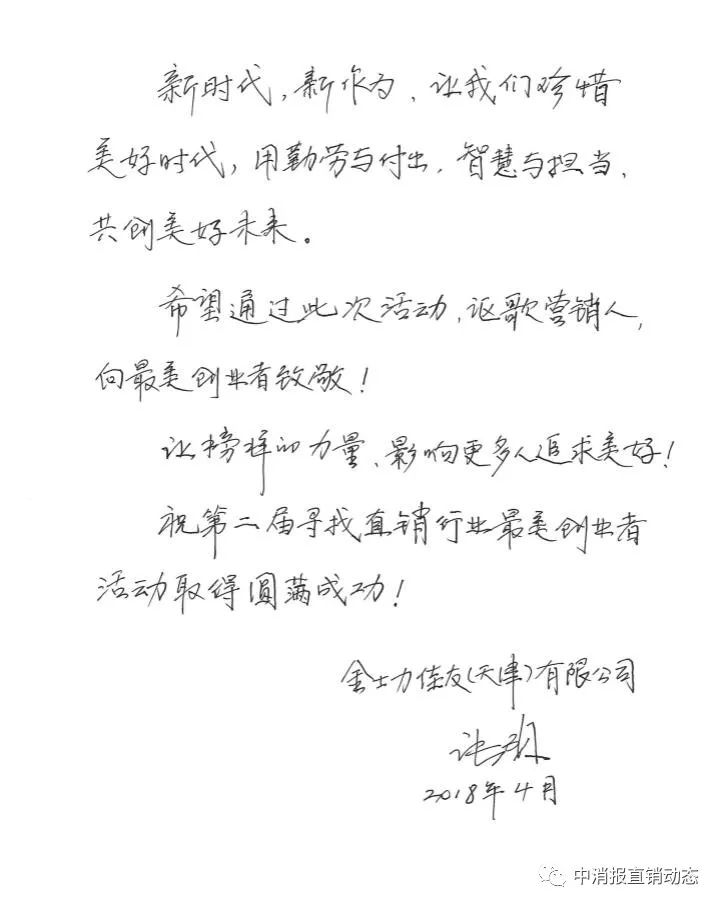 新时代，新作为，让我们珍惜
美好时代，用勤劳与付出，智慧与担当，
共创美好未来。
希望通过此次活动，讴歌营销人，
向最美创业者致敬！
让榜样的力量、影响更多人追求美好！
祝第二届寻找直销行业最美创业者
活动取得圆满成功！
金士力佳友(天津)有限公司
2018年4月
中消报直销动态